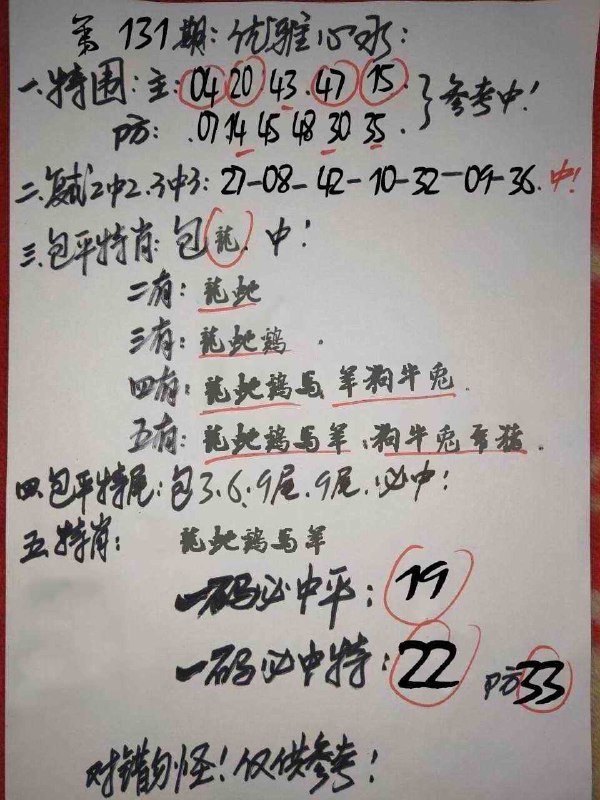 第131期:优雅心水:
一.特围:主:04 20 43.47 15
防:.07 14 45 48 30 35.}参考中!
二.复试2中2.3中3:27-08-42-10-32-09-36.中!
三.包平特肖:包龍.中!
二肖:龍虵
三肖:龍虵鷄.
四肖:龍虵鷄馬.羊狗牛兔.
五肖:龍虵鷄馬羊、狗牛兔 猪.
四.包平特尾:包3.6.9尾.9尾.必中!
五.特肖:龍虵鷄馬羊
一码必中平:19
一码必中特:22 防33
对错勿怪!仅供参考!